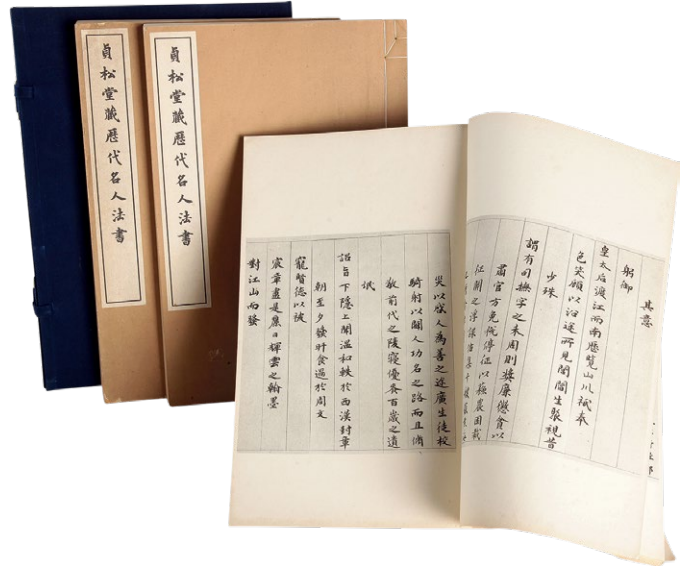 貞松堂藏歷代名人法書
貞松堂藏歷代名人法書
其意
躬御
皇太后渡江而南歷覽山川祇奉
色笑顧以沿途所見閭閻生聚視昔
少殊
謂有司撫字之未周則獎廉懲貪以
肅官方免稅停征以蘓農困裁
征關之浮課
災以廣人為善之途廣生徒校
騎射以開人功名之路而且脩
敬前代之陵寢優養百歲之遺
氓
詔旨下隱上聞溫和軼於西漢封章
朝至夕發旰食過於周文
寵賢德以被
宸章盡是麗日輝雲之翰墨
對江山而發